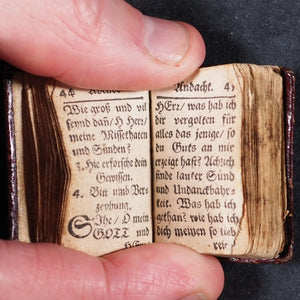 44
Wie groß und vil
seynd dañ / O Herr /
meine Missethaten
und Sünden?
3. Hie erforsche dein
Gewissen.
4. Bitt umb Ver-
zeyhung.
SIhe / O mein
GOTT und
Andacht. 4
HErr / was hab ich
dir vergolten für
alles das jenige / so
du Guts an mir
erzeigt hast? Ach! ich
finde lauter Sünd
und Undanckbahr-
keit. Was hab ich
gethan? wie hab ich
dich meinen so lieb-
rei-